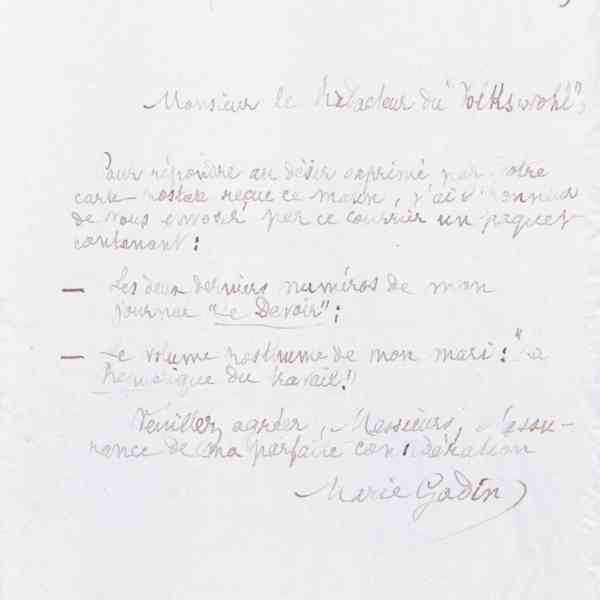 Monsieur le Rédacteur du "Volkswohl",
Pour répondre au désir exprimé par votre
carte postale reçue ce matin, j'ai l'honneur
de vous envoyer par ce courrier un paquet
contenant :
— Les deux derniers numéros de mon
journal "Le Devoir" ;
— Le volume posthume de mon mari : "La
République du travail"
Veuillez agréer, Messieurs, l'assu-
rance de ma parfaite considération
Marie Godin